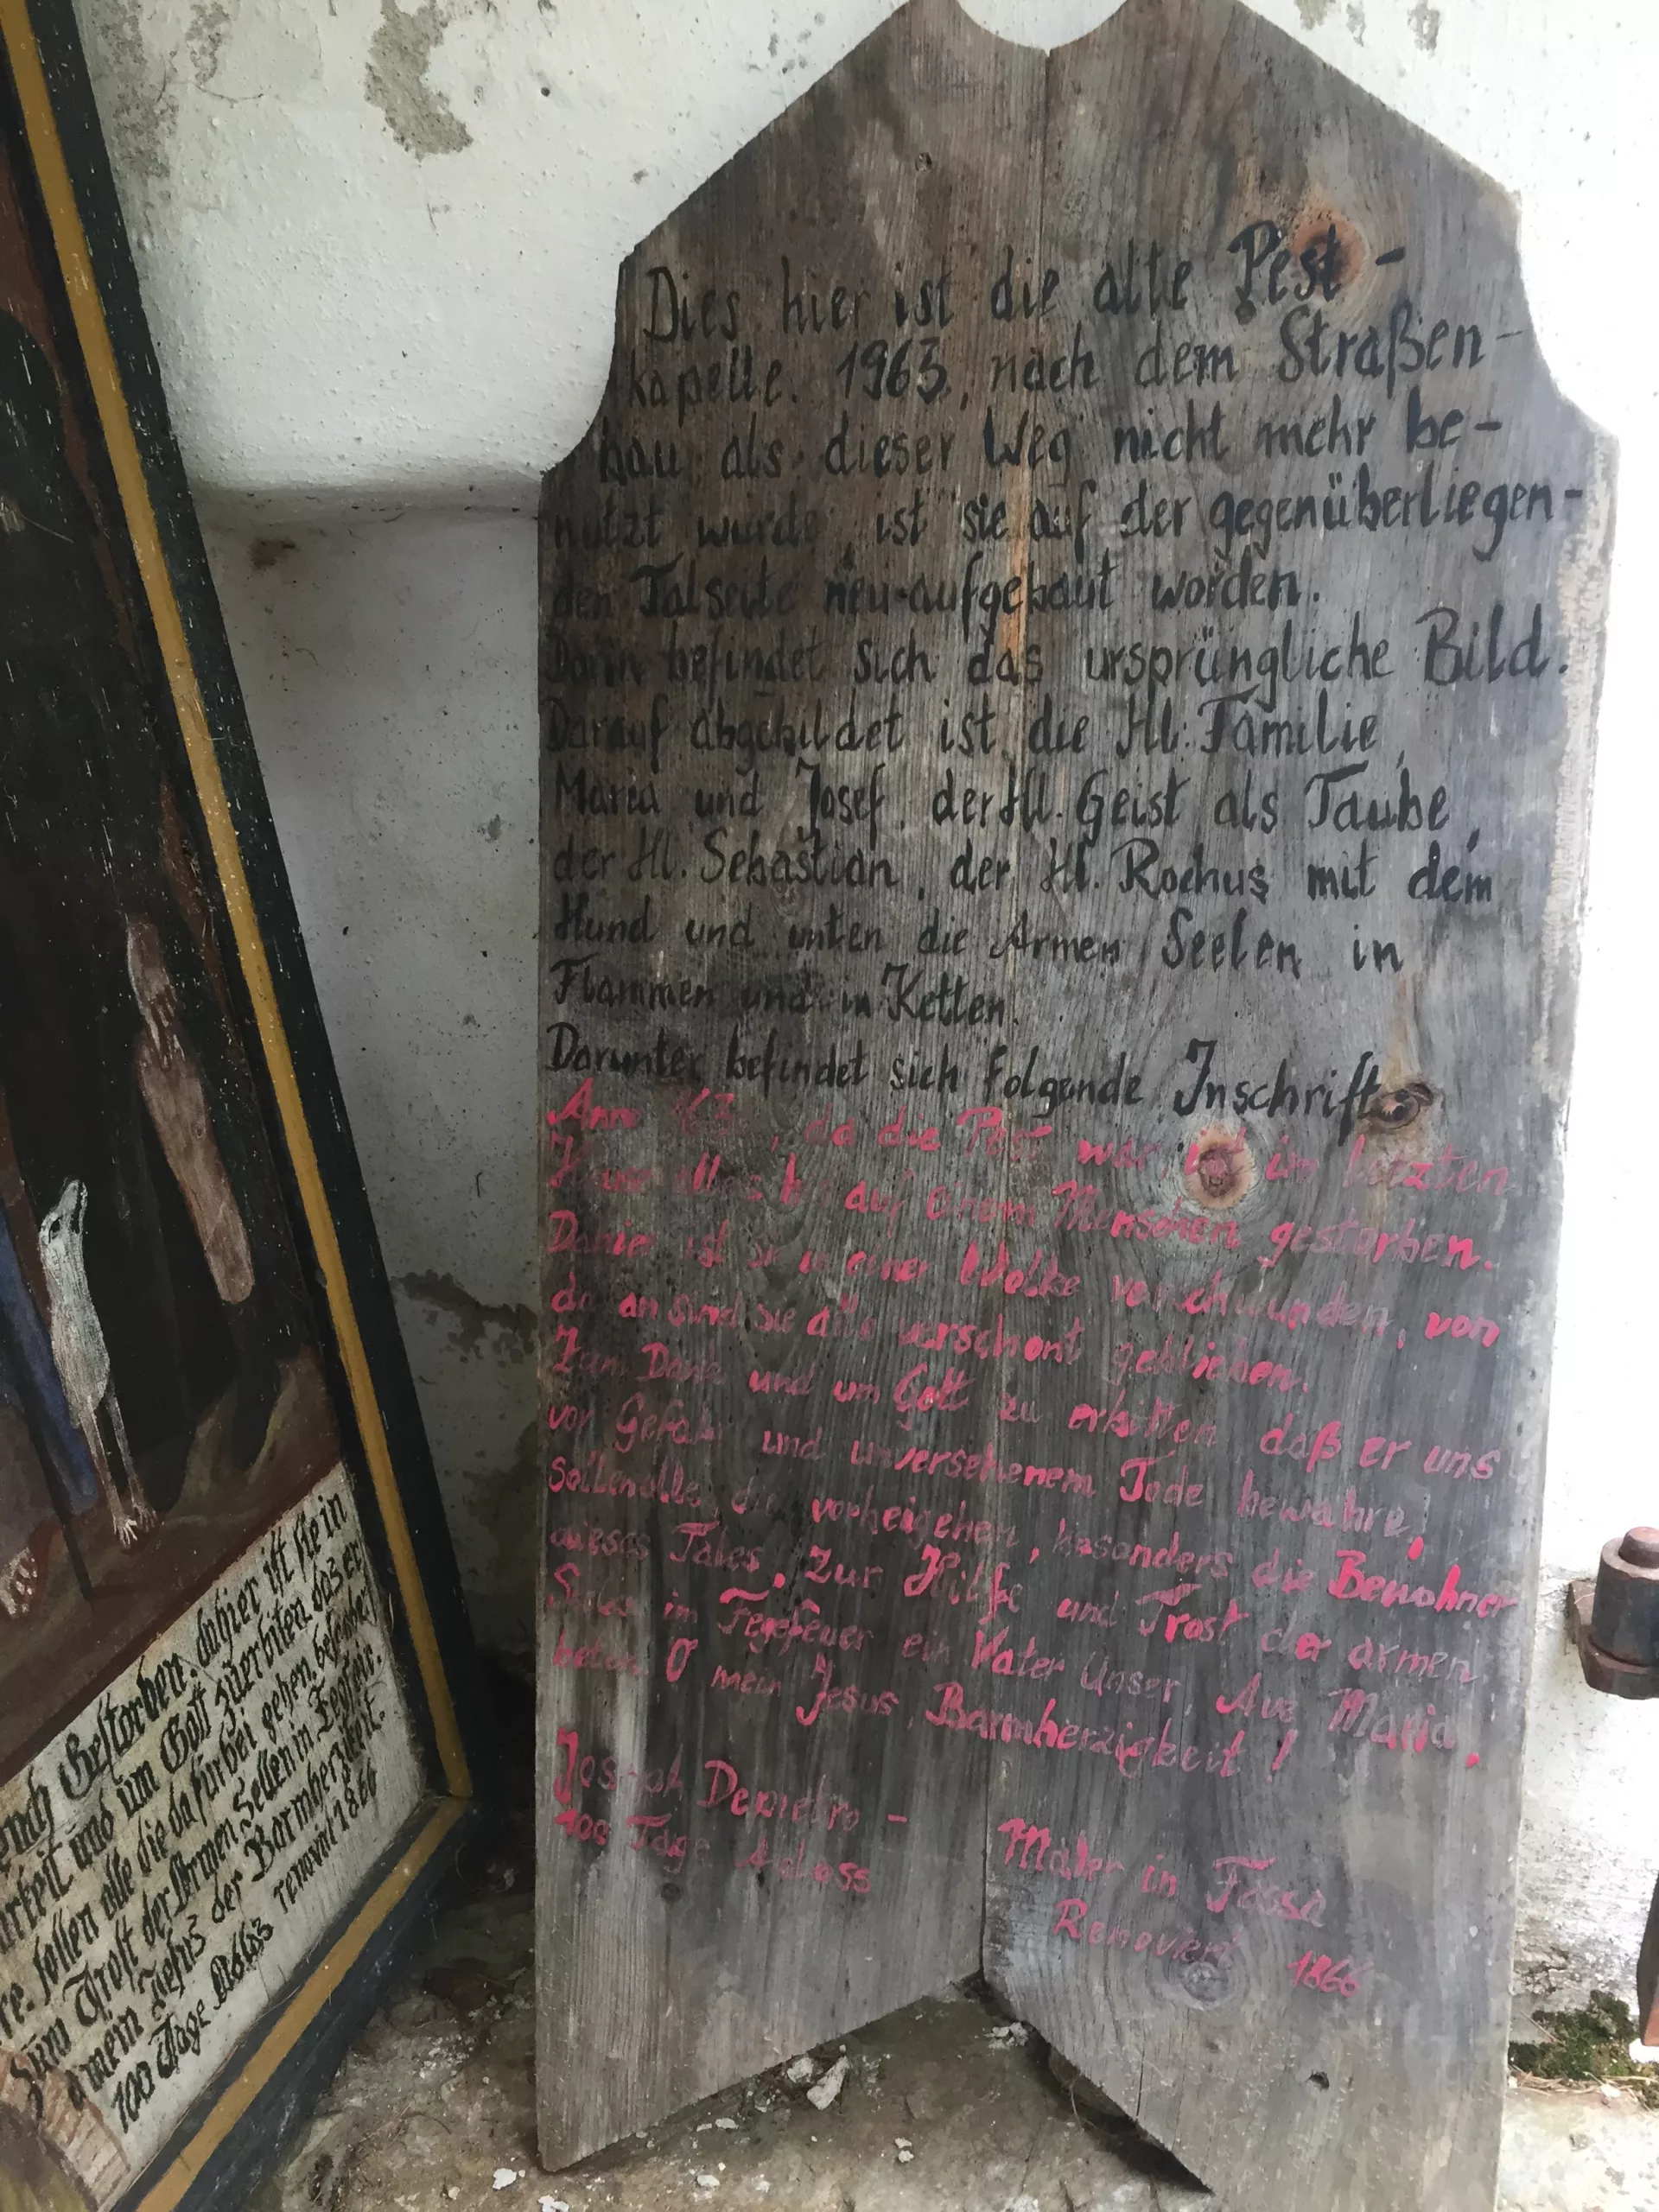 Dies hier ist die alte Pest-
kapelle. 1963, nach dem Straßen-
bau, als dieser Weg nicht mehr be-
nutzt wurde, ist sie auf der gegenüberliegen-
den Talseite neu-aufgebaut worden.
Darin befindet sich das ursprüngliche Bild.
Darauf abgebildet ist die Hl. Familie,
Maria und Josef, der Hl. Geist als Taube,
der Hl. Sebastian, der Hl. Rochus mit dem
Hund und unten die Armen Seelen in
Flammen und in Ketten.
Darunter befindet sich folgende Inschrift
Anno, da die Pest war, ist im letzten
Hause alles bis auf einem Menschen gestorben.
Dahier ist sie in einer Wolke verschwunden, von
da an sind sie alle verschont geblieben.
Zum Dank und um Gott zu erbitten daß er uns
vor Gefahr und unversehenem Tode bewahre,
sollen alle, die vorbeigehen, besonders die Bewohner
dieses Tales, zur Hilfe und Trost der armen
Seelen im Fegefeuer ein Vater Unser, Ave Maria,
beten. O mein Jesus, Barmherzigkeit!
Joseph Depietro -
Maler in Fassa
100 Tage Ablass
Renoviert 1866
Gestorben. dahier ist sie in
und um Gott zuerbiten das er
sollen alle die da fürbei gehen. besonders
zum Trost der Armen. Sellen in Fegfeir.
O mein Jesus der Barmherzikeit.
100 Tage Ablas renovirt 1866